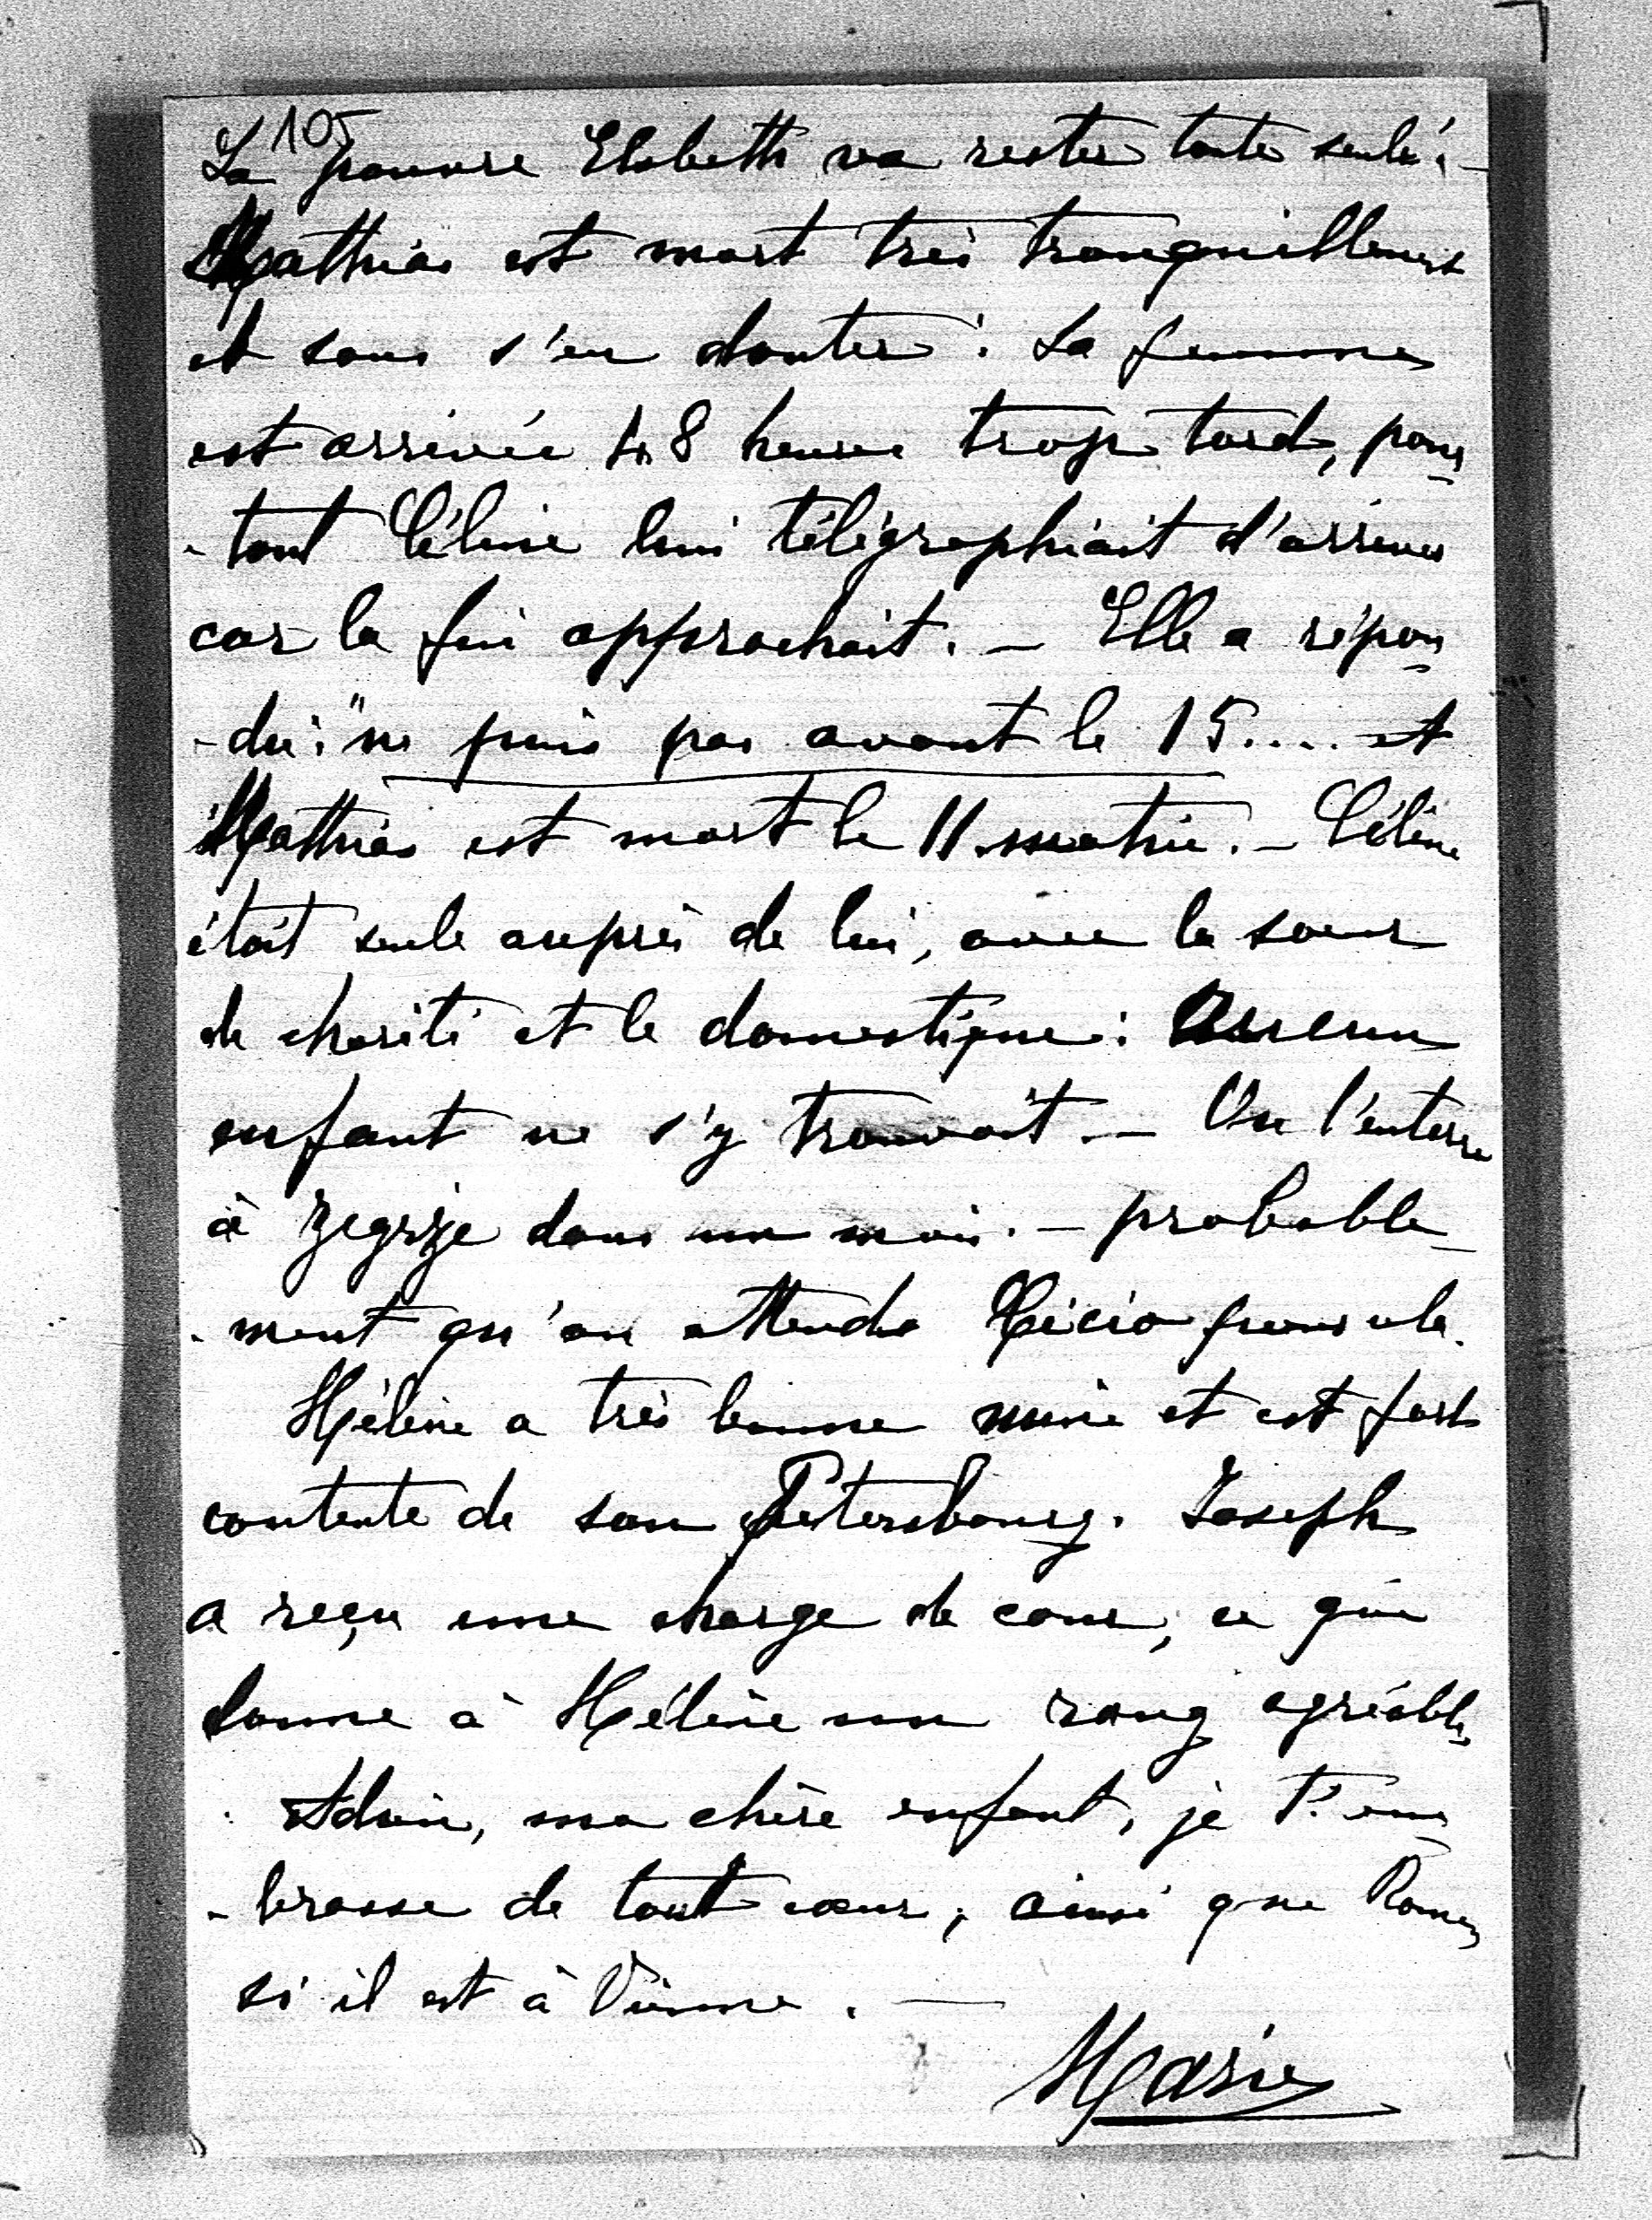 105
La pauvre Elsbeth va rester toute seule! -
Matthias est mort très tranquillement
et sans s'en douter: Sa femme
est arrivée 48 heures trop tard, pour
-tant Céline lui télégraphiait d'arriver
car la fin approchait. - Elle a répon
-du: "ne puis pas avant le 15.... et
Matthias est mort le 11 matin. - Céline
était seule auprès de lui, avec la soeur
de charité et le domestique: Aucun
enfant ne s'y trouvait. - On l'enterre
à Zegrze dans un mois. - probable_
-ment qu'on attendra
Hélène a très bonne mine et est fort
contente de son Petersbourg. Joseph
a reçu une charge de cour, ce qui
donne à Hélène un rang agréable,
Adieu, ma chère enfant, je t'em_
-brasse de tout coeur, ainsi que Roman
si il est à Vienne. —
Marie